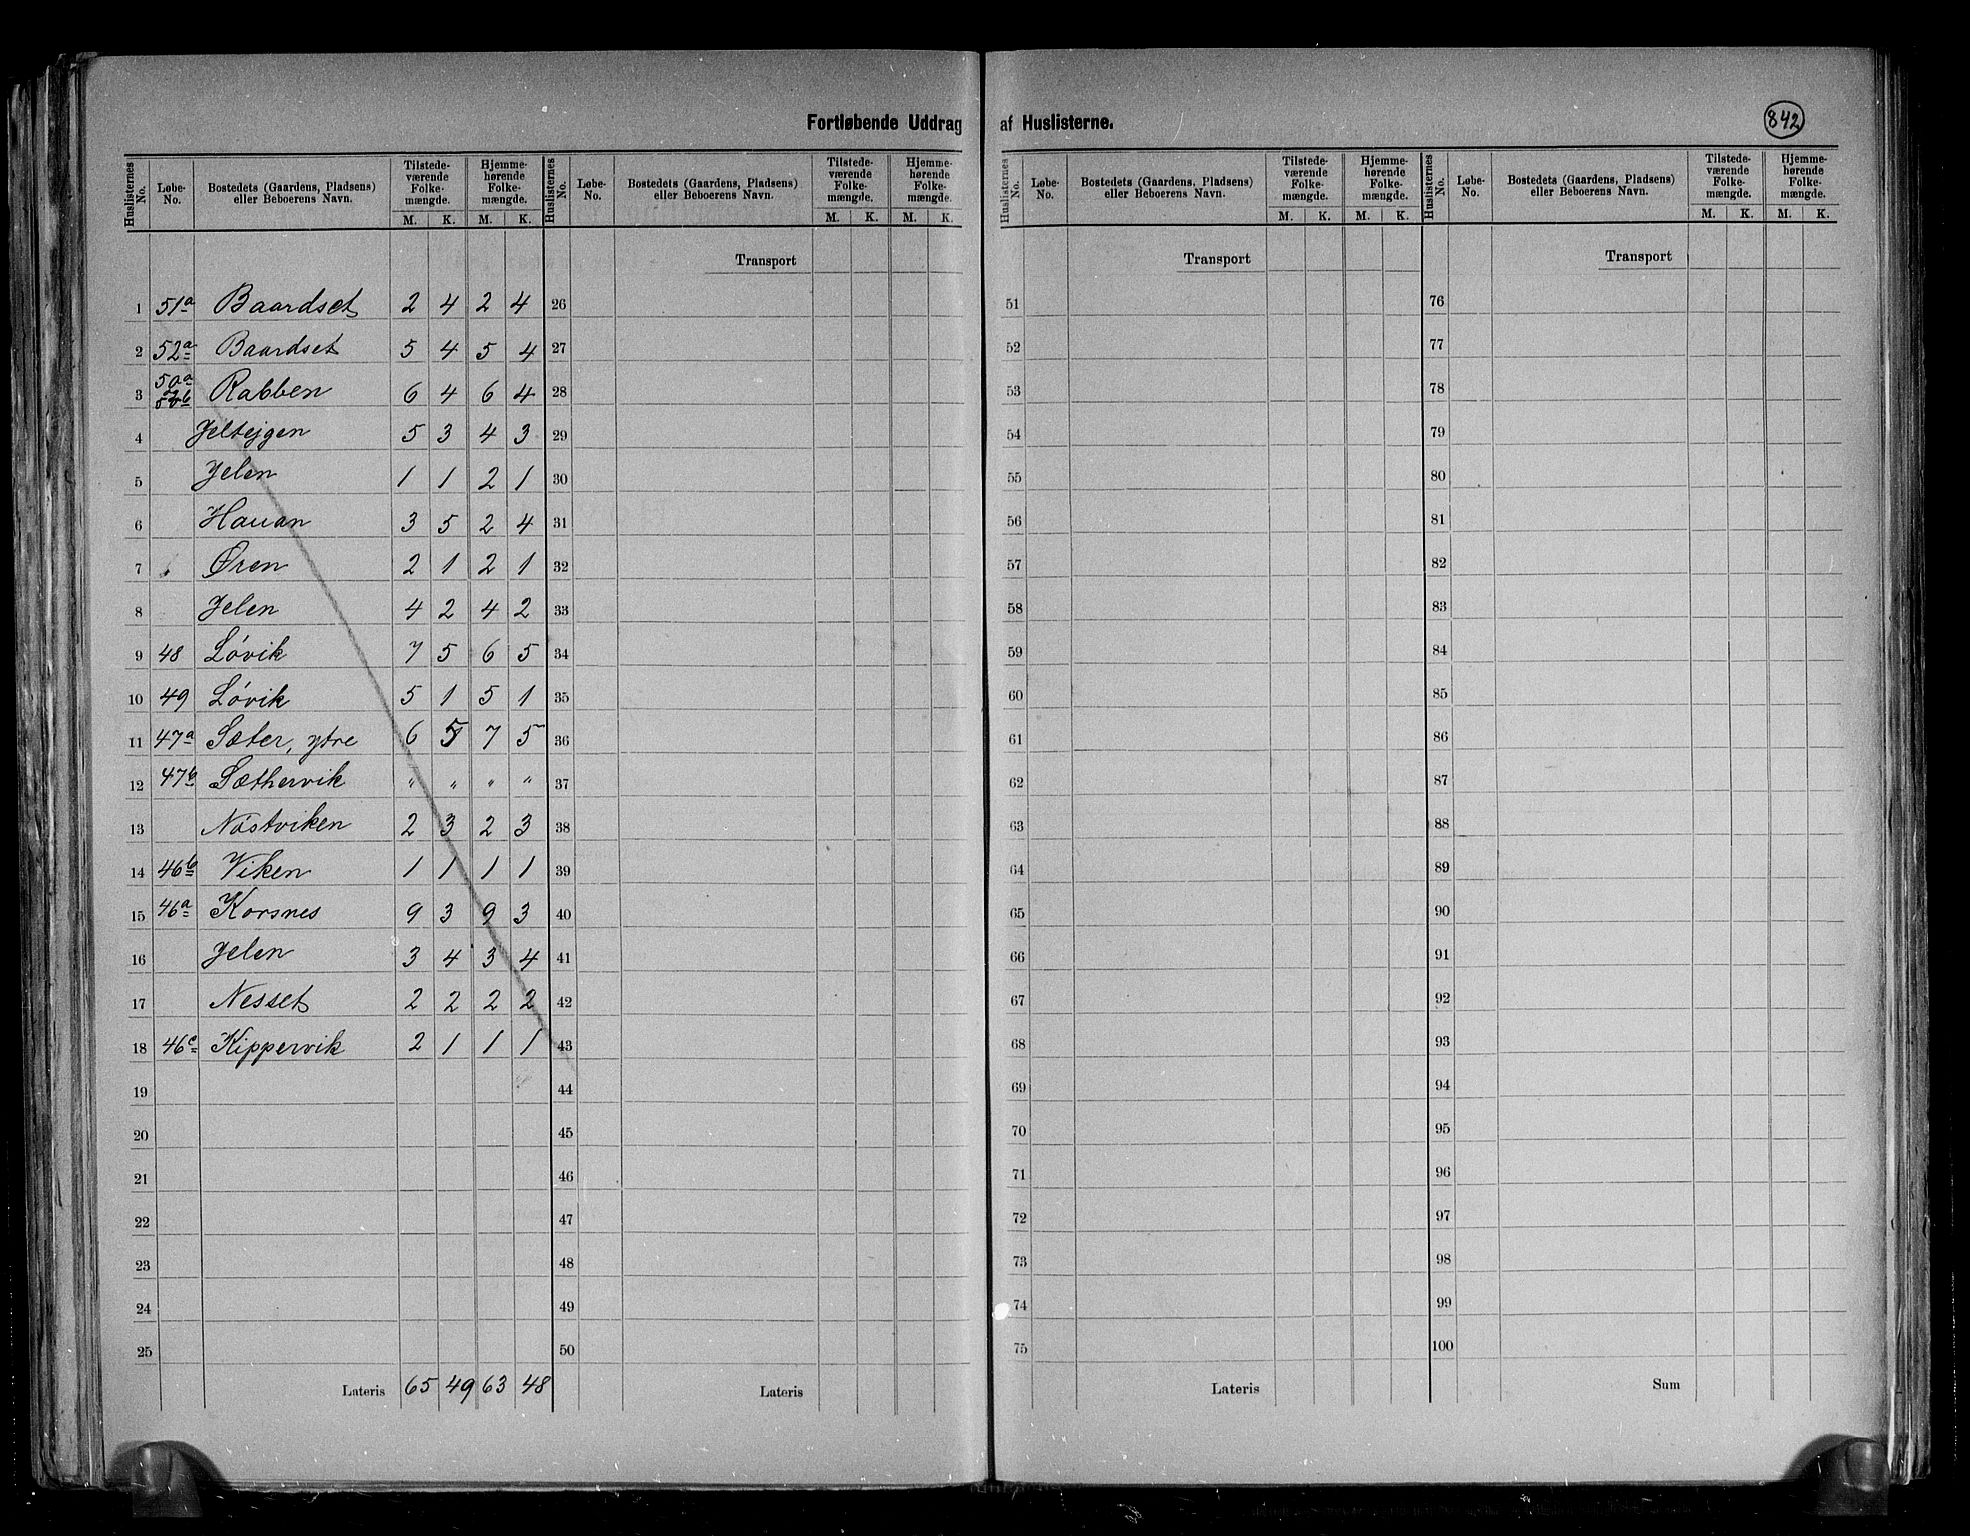 842
Fortløbende Uddrag af Huslisterne.
Huslisternes No. Løbe-No. Bostedets (Gaardens, Pladsens) eller Beboerens Navn. Tilstede-værende Folke-mængde. M. K. Hjemme-hørende Folke-mængde. M. K.
1 51a Baardset 2 4 2 4
2 52a Baardset 5 4 5 4
3 50a Rabben 6 4 6 4
4 Jeltejgen 5 3 4 3
5 Jelen 1 1 2 1
6 Hauan 3 5 2 4
7 Øren 2 1 2 1
8 Jelen 4 2 4 2
9 48 Løvik 7 5 6 5
10 49 Løvik 5 1 5 1
11 47a Sæter, ytre 6 5 7 5
12 47b Sæthervik " " " "
13 Nøstviken 2 3 2 3
14 46b Viken 1 1 1 1
15 46a Korsnes 9 3 9 3
16 Jelen 3 4 3 4
17 Nesset 2 2 2 2
18 46c Kippervik 2 1 1 1
19
20
21
22
23
24
25
Lateris 65 49 63 48
Huslisternes No. Løbe-No. Bostedets (Gaardens, Pladsens) eller Beboerens Navn. Tilstede-værende Folke-mængde. M. K. Hjemme-hørende Folke-mængde. M. K.
Transport
26
27
28
29
30
31
32
33
34
35
36
37
38
39
40
41
42
43
44
45
46
47
48
49
50
Lateris
Huslisternes No. Løbe-No. Bostedets (Gaardens, Pladsens) eller Beboerens Navn. Tilstede-værende Folke-mængde. M. K. Hjemme-hørende Folke-mængde. M. K.
Transport
51
52
53
54
55
56
57
58
59
60
61
62
63
64
65
66
67
68
69
70
71
72
73
74
75
Lateris
Huslisternes No. Løbe-No. Bostedets (Gaardens, Pladsens) eller Beboerens Navn. Tilstede-værende Folke-mængde. M. K. Hjemme-hørende Folke-mængde. M. K.
Transport
76
77
78
79
80
81
82
83
84
85
86
87
88
89
90
91
92
93
94
95
96
97
98
99
100
Sum